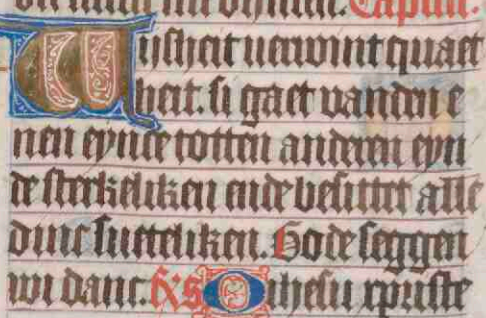 Capitt.
Wijsheit uerwint quaet
heit. si gaet vanden e
nen eynde totten anderen eyn
de sterkeliken ende besittet alle
dinc suetteliken. Gode seggen
wi danc. Rs O ihesu cpriste